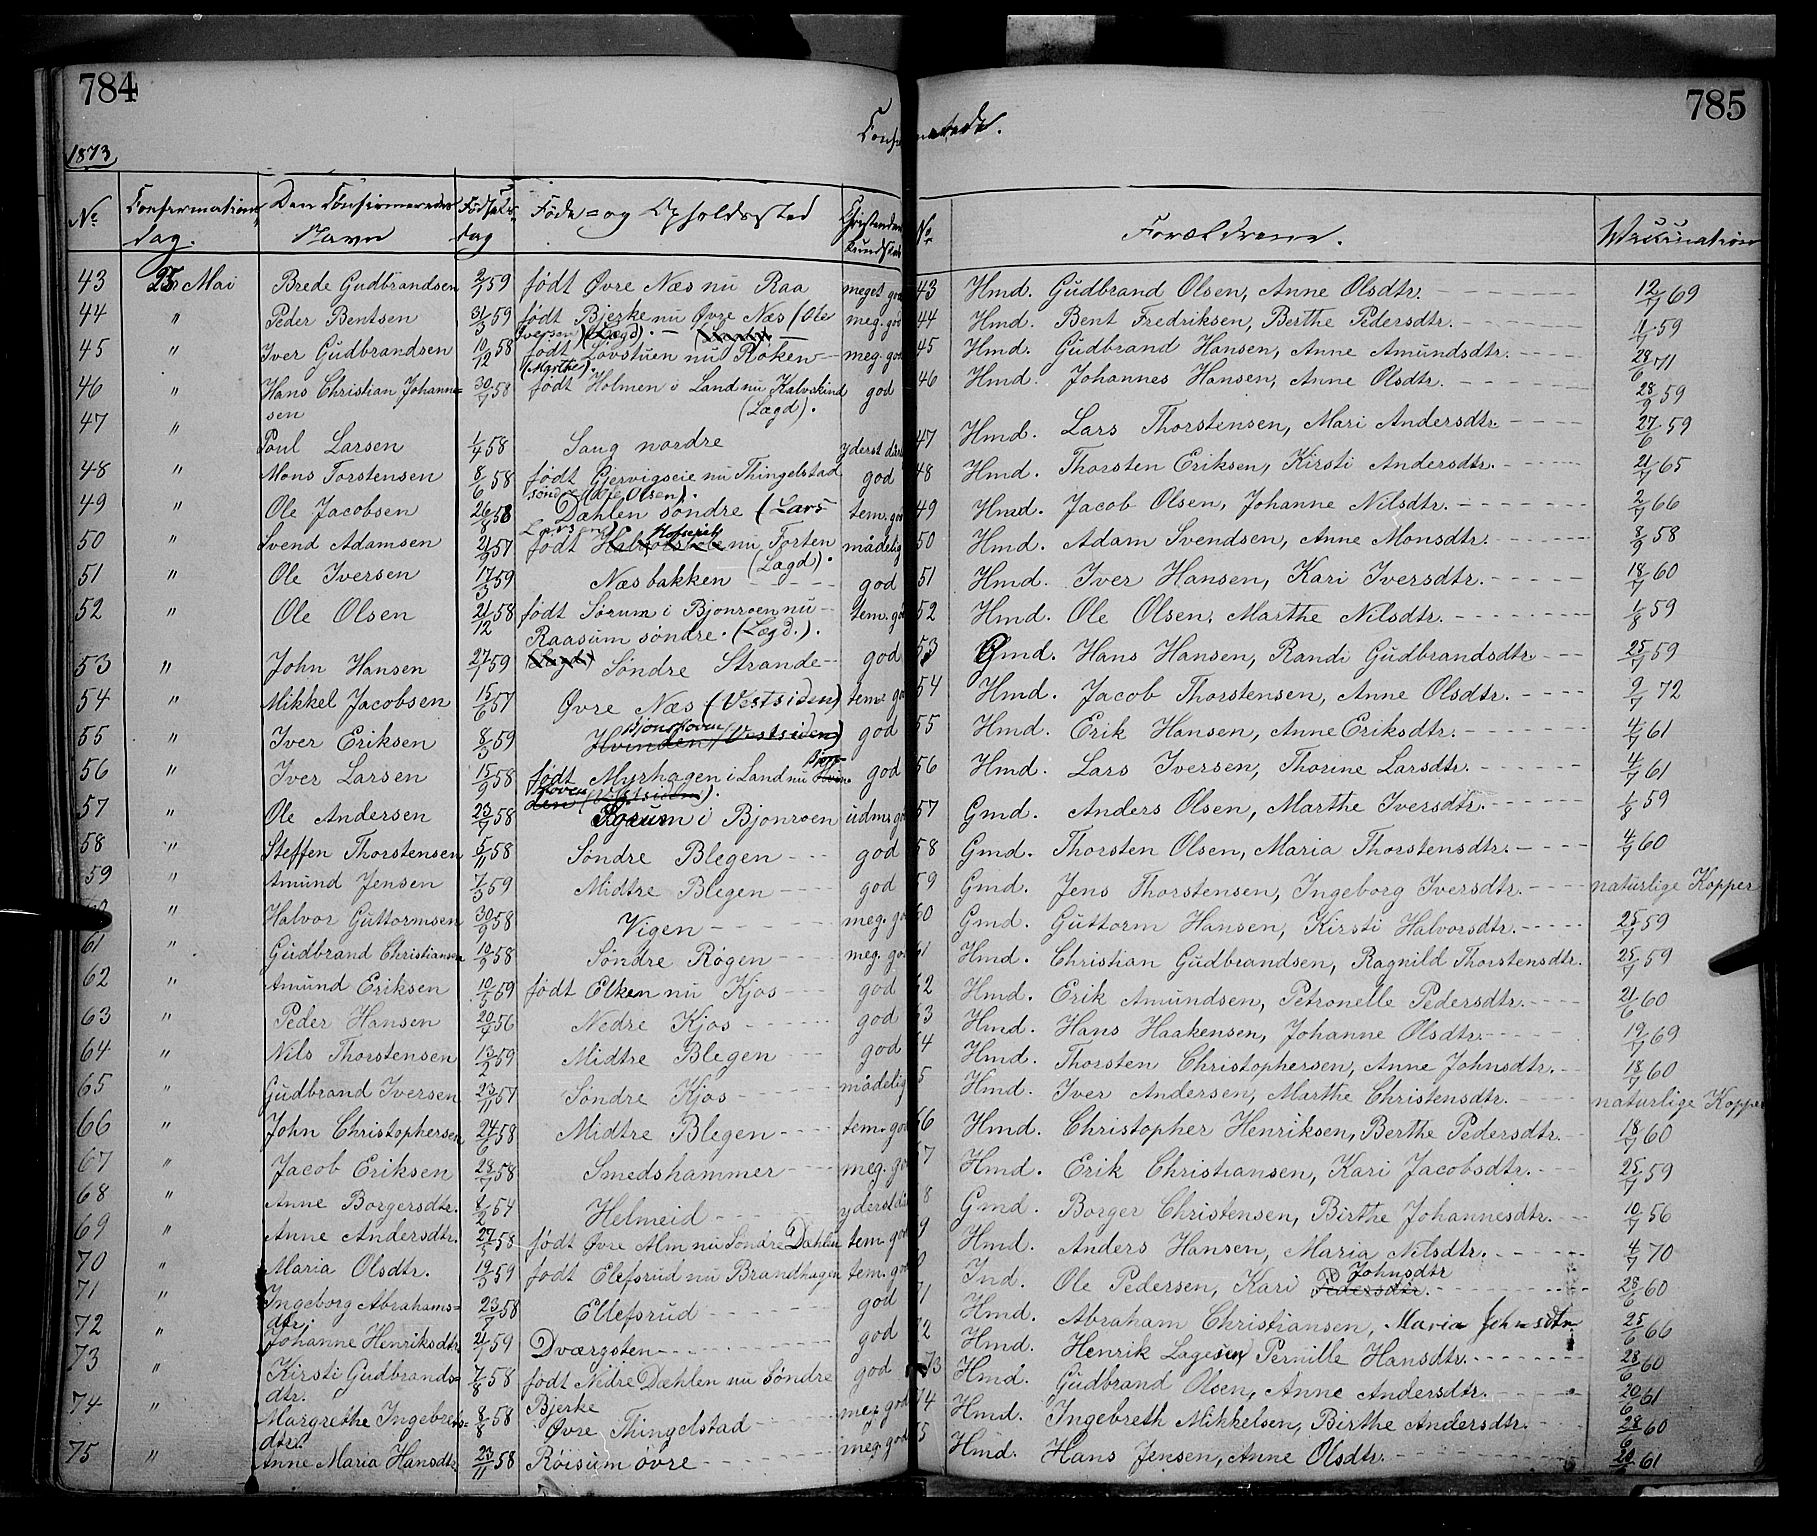 784
785
Confirmerede.
1873
No Confirmations dag. Den Confirmeredes Navn Fødsels dag Føde- og Opholdssted Christendoms Kundskab No Forældrene. Vaccination
43 25 Mai Brede Gudbrandsen 2/7 59 født Øvre Næs nu Raa meget god 43 Hmd. Gudbrand Olsen, Anne Olsdtr. 12/7 69
44 " Peder Bentsen 31/3 59 født Bjerke nu Øvre Næs (Ole Iversen) (Lægd). meg. god 44 Hmd. Bent Fredriksen, Berthe Pedersdtr. 59
45 " Iver Gudbrandsen 10/12 58 født Lovstuen nu Røken (Myrthe). meg. god 45 Hmd. Gudbrand Hansen, Anne Amundsdtr. 28/6 71
46 " Hans Christian Johannesen 30/7 58 født Holmen i Land nu Kalvskind (Lægd). god 46 Hmd. Johannes Hansen, Anne Olsdtr. 28/9 59
47 " Poul Larsen 1/4 58 Saug nordre yderst 47 Hmd. Lars Thorstensen, Mari Andersdtr. 27/6 59
48 " Mons Torstensen 8/6 58 født Gjervigseie nu Thingelstad søndre (Ole Olsen). god 48 Hmd. Thorsten Eriksen, Kirsti Andersdtr. 21/7 65
49 " Ole Jacobsen 26/8 58 Dæhlen søndre (Lars Larsen) tem. god 49 Hmd. Jacob Olsen, Johanne Nilsdtr. 2/7 66
50 " Svend Adamsen 21/9 57 født nu Forten (Lægd). mådelig 50 Hmd. Adam Svendsen, Anne Monsdtr. 8/9 58
51 " Ole Iversen 17/3 59 Næsbakken god 51 Hmd. Iver Hansen, Kari Iversdtr. 18/7 60
52 " Ole Olsen 21/12 58 født Sørum i Bjonroen nu Raasum søndre. (Lægd.). tem. god 52 Hmd. Ole Olsen, Marthe Nilsdtr. 1/8 59
53 " John Hansen 27/7 59 (Lægd) Søndre Strande god 53 Gmd. Hans Hansen, Randi Gudbrandsdtr 25/7 59
54 " Mikkel Jacobsen 15/6 57 Øvre Næs (Vestsiden) tem. god 54 Hmd. Jacob Thorstensen, Anne Olsdtr. 9/7 72
55 " Iver Eriksen 8/3 59 Bjonskoven Hvinden (Vestsiden) god 55 Hmd. Erik Hansen, Anne Eriksdtr. 4/7 61
56 " Iver Larsen 15/9 58 født Myrhagen i Land nu Hvinden (Vestsiden). god 56 Hmd. Lars Iversen, Thorine Larsdtr. 4/7 61
57 " Ole Andersen 23/7 58 i Bjonroen udm. god 57 Gmd. Anders Olsen, Marthe Iversdtr. 1/8 59
58 " Steffen Thorstensen 5/11 58 Søndre Blegen god 58 Gmd. Thorsten Olsen, Maria Thorstensdtr. 4/7 60
59 " Amund Jensen 7/3 59 Midtre Blegen god 59 Gmd. Jens Thorstensen, Ingeborg Iversdtr. naturlige Kopper
60 " Halvor Guttormsen 30/9 58 Vigen meg. god 60 Gmd. Guttorm Hansen, Kirsti Halvorsdtr. 25/7 59
61 " Gudbrand Christiansen 10/9 58 Søndre Røgen meg. god 61 Hmd. Christian Gudbrandsen, Ragnild Thorstensdtr. 25/7 59
62 " Amund Eriksen 10/5 59 født Elken nu Kjos god 62 Hmd. Erik Amundsen, Petronelle Pedersdtr. 21/6 60
63 " Peder Hansen 20/7 56 Nedre Kjos god 63 Hmd. Hans Haakensen, Johanne Olsdtr. 19/7 69
64 " Nils Thorstensen 13/2 59 Midtre Blegen god 64 Hmd. Thorsten Christophersen, Anne Johnsdtr. 18/7 60
65 " Gudbrand Iversen 23/11 57 Søndre Kjos mådelig 65 Hmd. Iver Andersen, Marthe Christensdtr. naturlige Kopper
66 " John Christophersen 24/6 58 Midtre Blegen tem. god 66 Hmd. Christopher Henriksen, Berthe Pedersdtr. 18/7 60
67 " Jacob Eriksen 28/7 58 Smedshammer meg. god 67 Hmd. Erik Christiansen, Kari Jacobsdtr. 25/7 59
68 " Anne Borgersdtr. 8/2 54 Helmeid yderst 8 Gmd. Borger Christensen, Birthe Johannesdtr. 10/7 56
69 " Anne Andersdtr. 27/5 58 født Øvre Alm nu Søndre Dæhlen tem. god 9 Hmd. Anders Hansen, Maria Nilsdtr. 4/7 70
70 " Maria Olsdtr. 19/3 59 født Elefsrud nu Brandhagen tem. god 0 Ind. Ole Pedersen, Kari Pedersdtr. Johnsdtr 28/6 60
71 " Ingeborg Abrahamsdtr. 23/7 58 Ellefsrud god 1 Hmd. Abraham Christiansen, Maria Johnsdtr 25/6 66
72 " Johanne Henriksdtr 21/1 59 Dværgsten god 2 Hmd. Henrik Lagesen, Pernille Hansdtr. 28/6 60
73 " Kirsti Gudbrandsdtr. 7/8 58 født Nedre Dæhlen nu Søndre Bjerke god 73 Hmd. Gudbrand Olsen, Anne Andersdtr. 20/6 61
74 " Margrethe Ingebretsdtr. 8/8 58 Øvre Thingelstad meg. god 74 Hmd. Ingebreth Mikkelsen, Birthe Andersdtr. 28/6 60
75 " Anne Maria Hansdtr 23/11 58 Røisum øvre meg. god 5 Hmd. Hans Jensen, Anne Olsdtr. 20/6 61